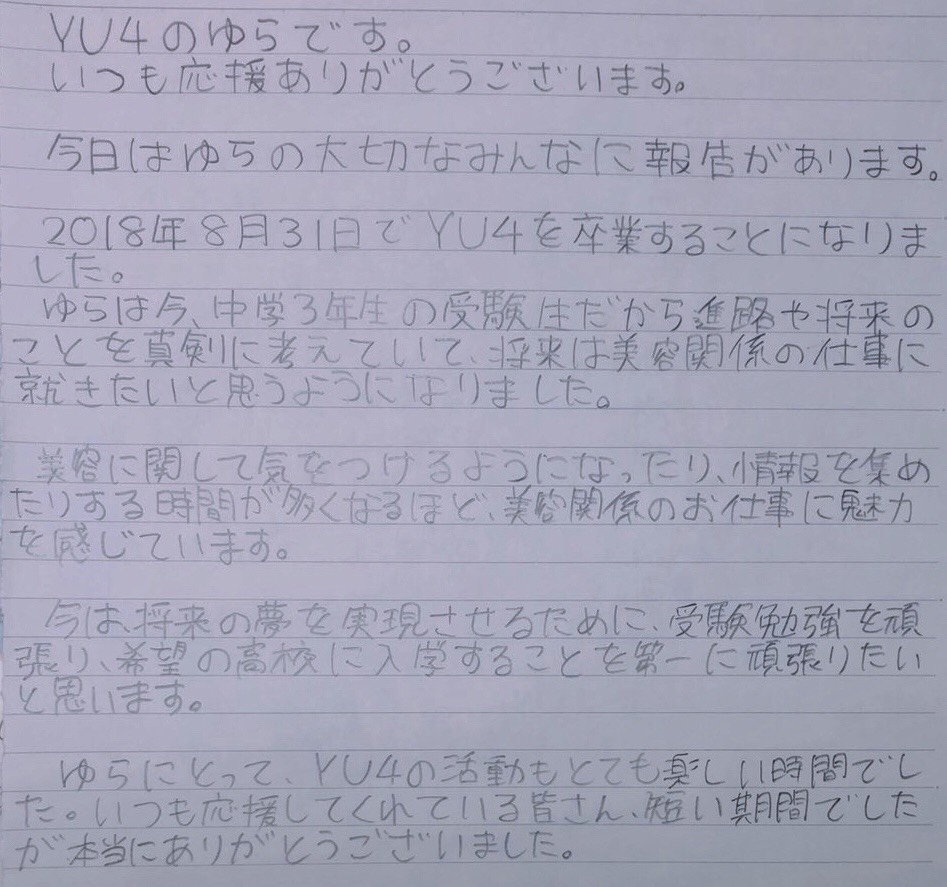 YU4のゆらです。
いつも応援ありがとうございます。
今日はゆらの大切なみんなに報告があります。
2018年8月31日でYU4を卒業することになりま
した。
ゆらは今、中学3年生の受験生だから進路や将来の
ことを真剣に考えていて、将来は美容関係の仕事に
就きたいと思うようになりました。
美容に関して気をつけるようになったり、情報を集め
たりする時間が多くなるほど、美容関係のお仕事に魅力
を感じています。
今は、将来の夢を実現させるために、受験勉強を頑
張り、希望の高校に入学することを第一に頑張りたい
と思います。
ゆらにとって、YU4の活動もとても楽しい時間でし
た。いつも応援してくれている皆さん、短い期間でした
が本当にありがとうございました。